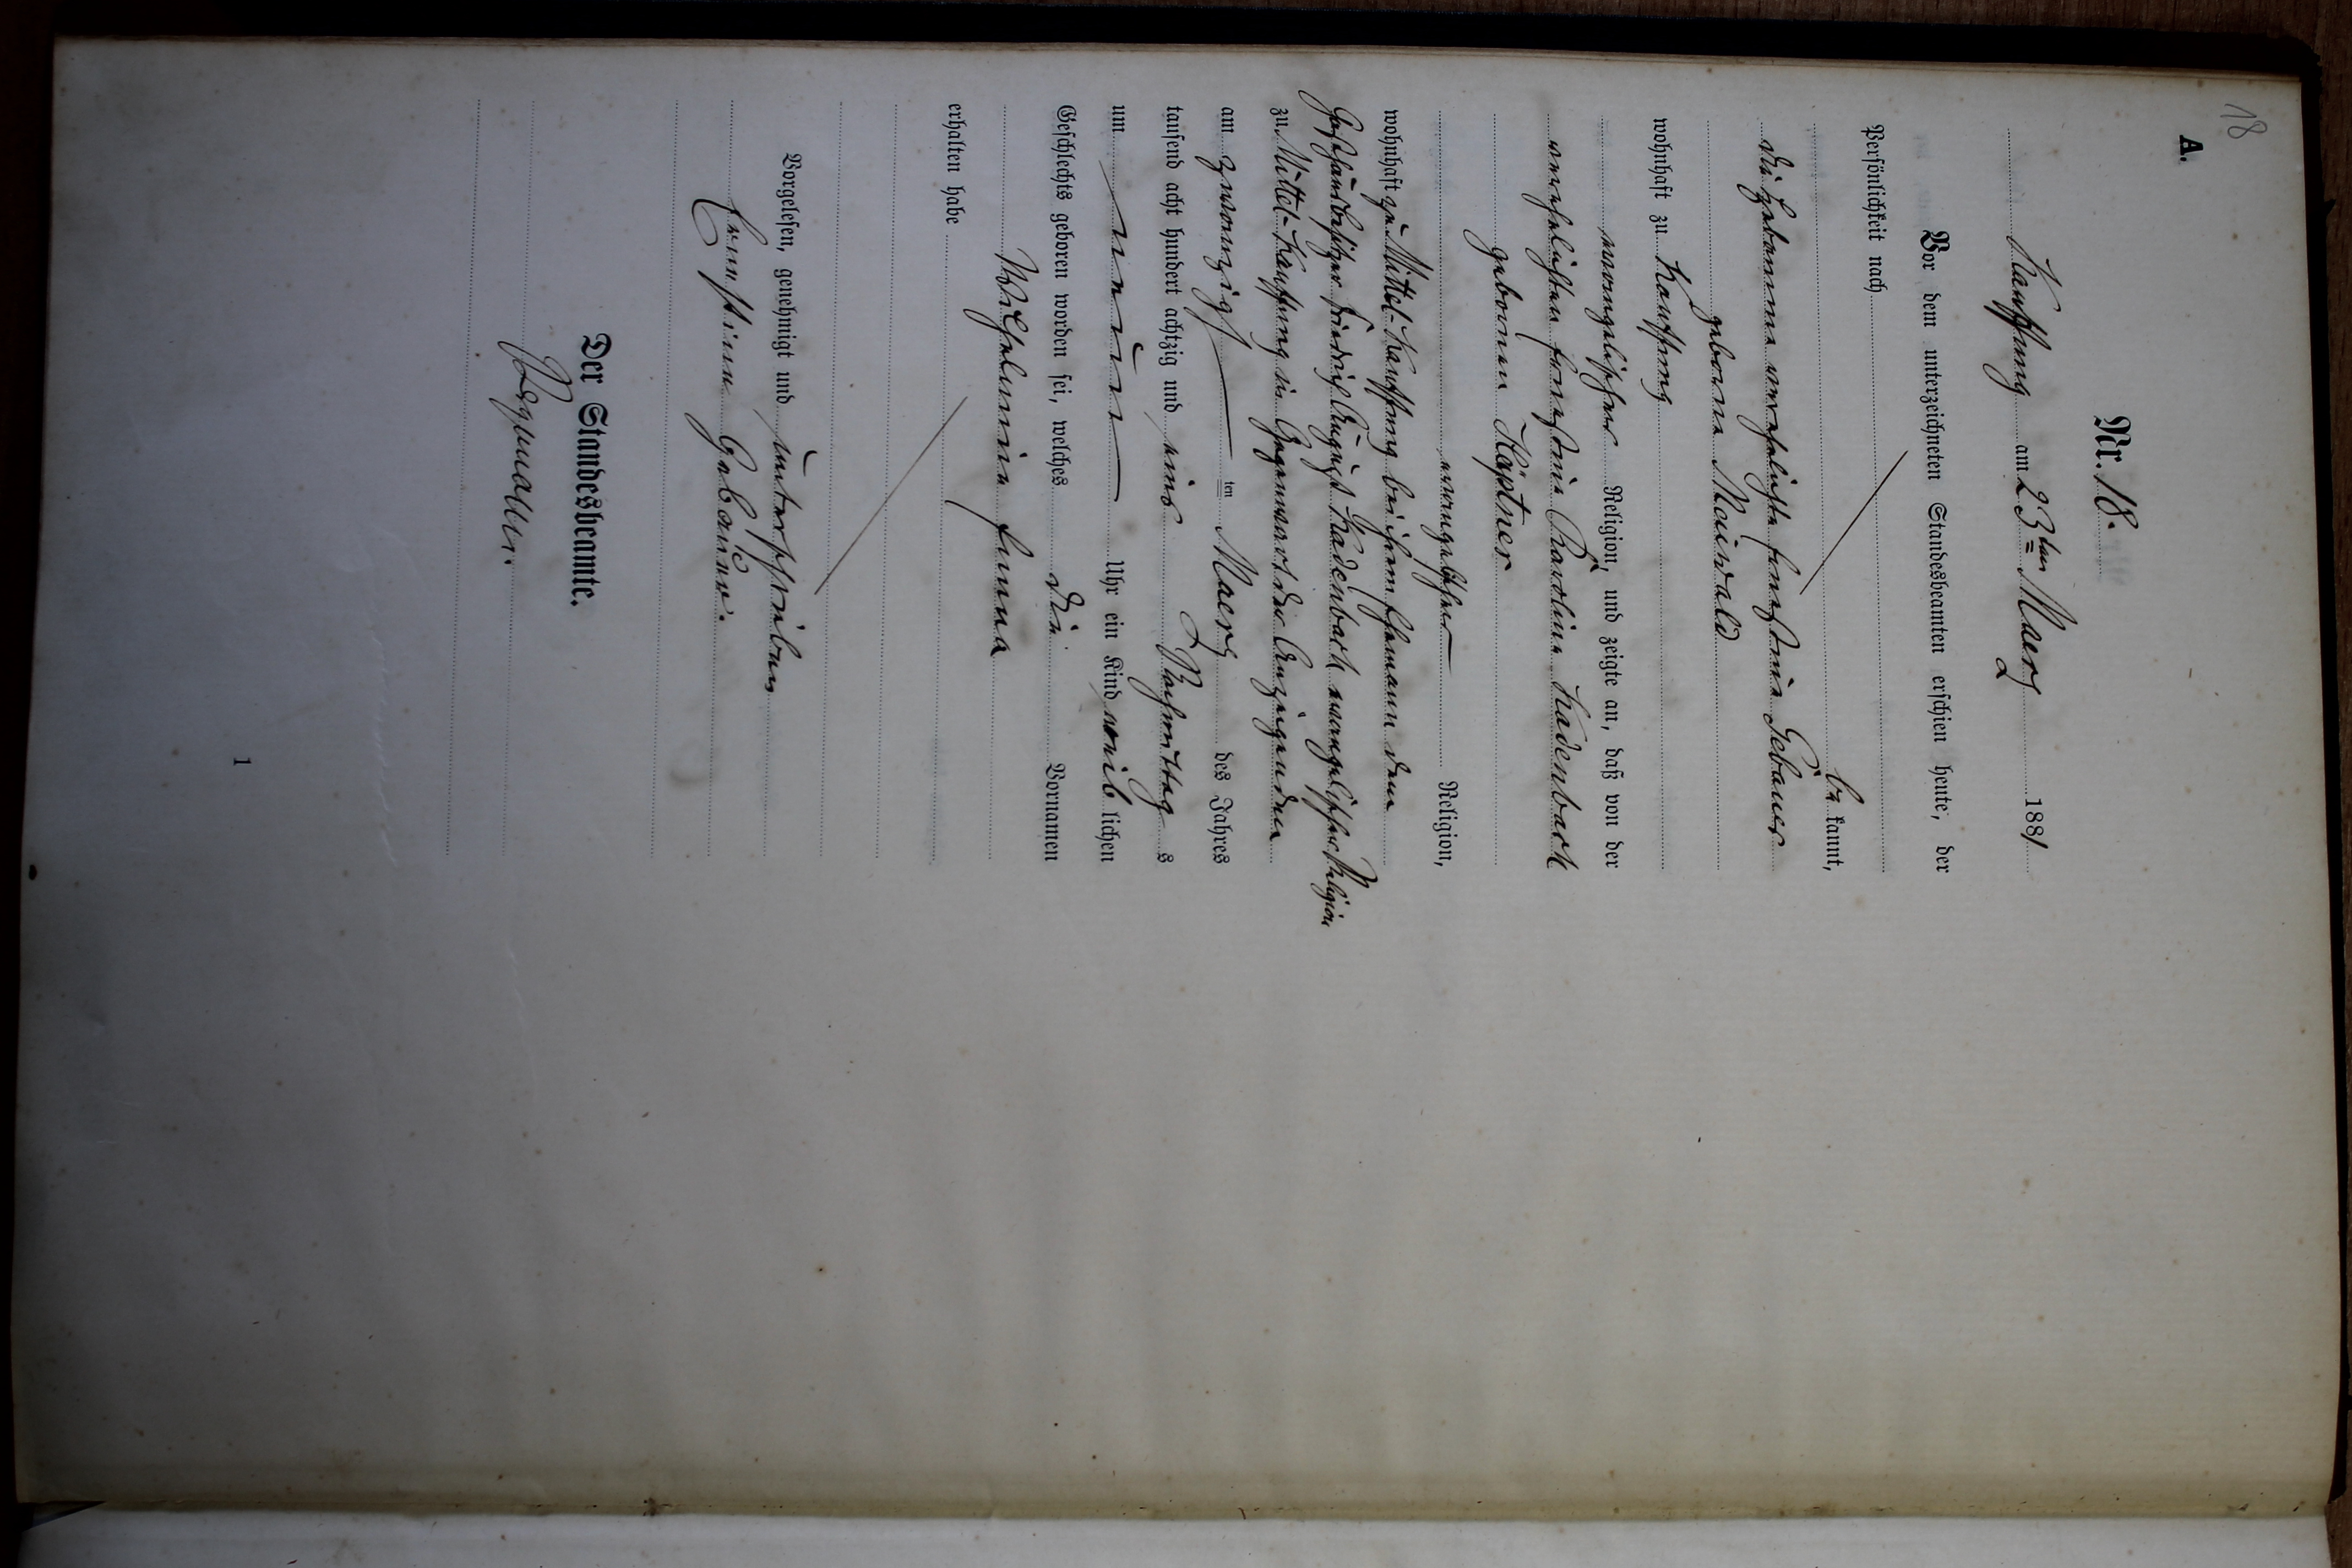 18
A.
Nr. 18.
Kauffung am 23ten Maerz 1881
Vor dem unterzeichneten Standesbeamten erschien heute, der
Persönlichkeit nach
be kannt,
die Hebamme verehelichte Ernestine Gebauer
geborne Maiwald
wohnhaft zu Kauffung
evangelischer Religion, und zeigte an, daß von der
verehelichten Ernestine Karoline Kadenbach
geborenen Käptner
evangelischer Religion,
wohnhaft zu Mittel-Kauffung bei ihrem Ehemann dem
Friedrich August Kadenbach evangelischer Religion
zu Mittel-Kauffung in Gegenwart der Anzeigenden
am zwanzigsten Maerz des Jahres
tausend acht hundert achtzig und eins Nachmittag s
um neun Uhr ein Kind weib lichen
Geschlechts geboren worden sei, welches die Vornamen
Wilhelmine Emma
erhalten habe
Vorgelesen, genehmigt und unterschrieben
Ernestine Gebauer.
Der Standesbeamte.
1